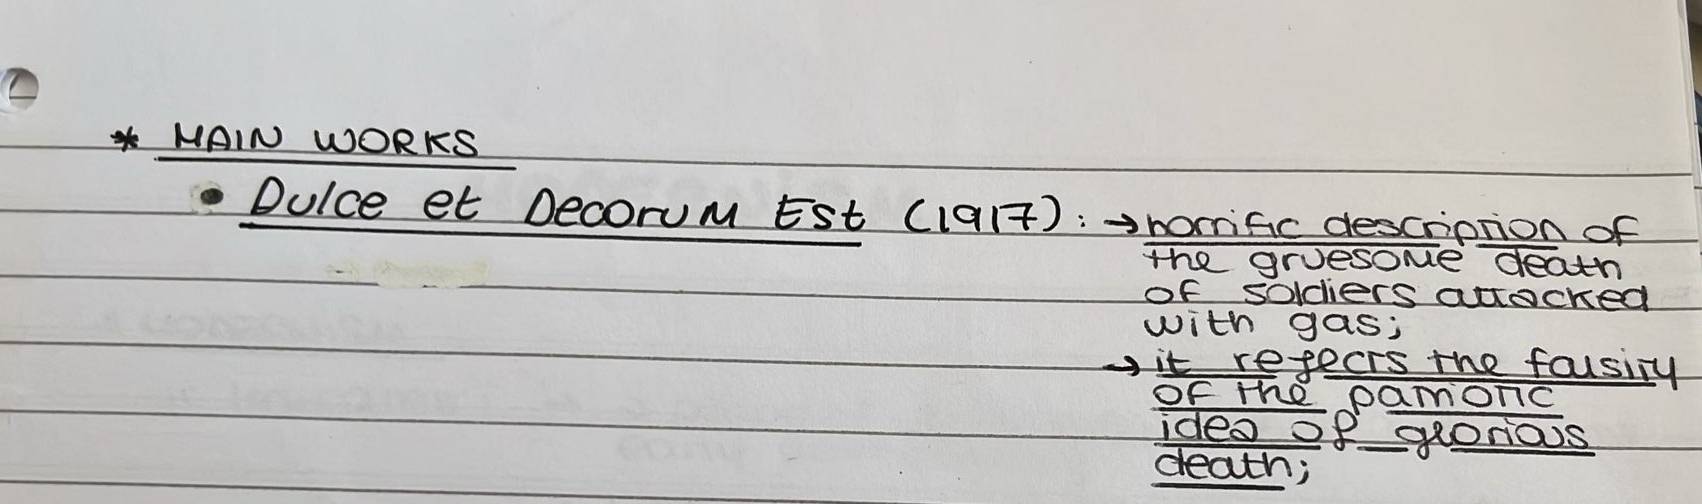 * MAIN WORKS
• Dulce et Decorum Est (1917): → horrific description of
the gruesome death
of soldiers attacked
with gas;
→ it rejects the falsity
of the patriotic
idea of glorious
death;